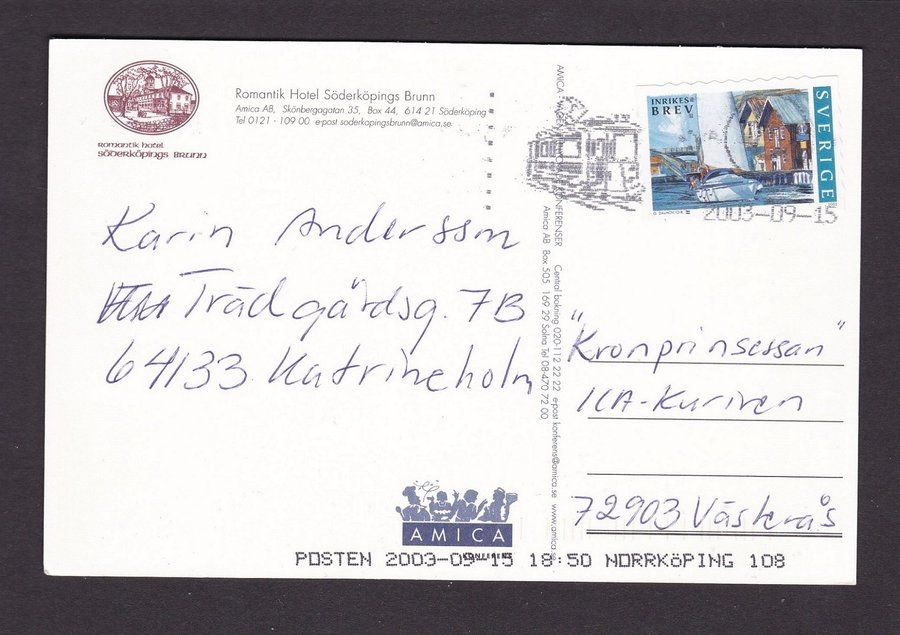 Romantik Hotel Söderköpings Brunn
Amica AB, Skönbergagatan 35, Box 44, 614 21 Söderköping
Tel 0121 - 109 00 e-post soderkopingsbrunn@amica.se
Romantik hotel
Söderköpings Brunn
Karin Andersson
Trädgårdsg. 7B
64133 Katrineholm
AMICA
KONFERENS
AMICA
KONFERENSER Central bokning 020-112 22 22 e-post konferens@amica.se www.amica.se
Amica AB Box 505 169 29 Solna Tel 08-470 72 00
INRIKES
BREV
SVERIGE
2003-09-15
"Kronprinsessan"
ICA-Kuriren
72903 Västerås
POSTEN 2003-09-15 18:50 NORRKÖPING 108